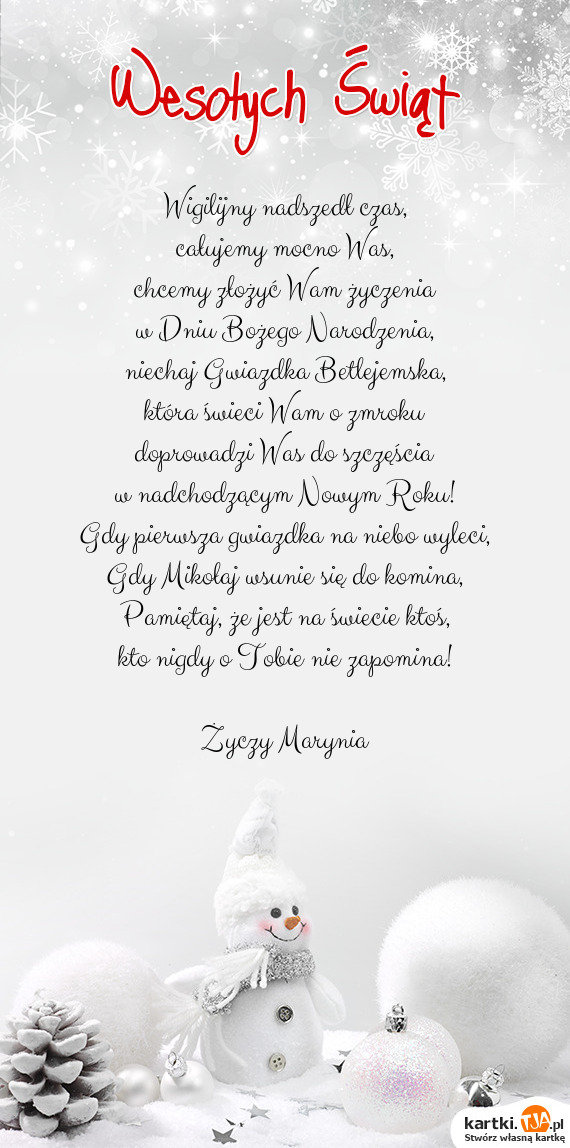 Wesołych Świąt
Wigilijny nadszedł czas,
całujemy mocno Was,
chcemy złożyć Wam życzenia
w Dniu Bożego Narodzenia,
niechaj Gwiazdka Betlejemska,
która świeci Wam o zmroku
doprowadzi Was do szczęścia
w nadchodzącym Nowym Roku!
Gdy pierwsza gwiazdka na niebo wyleci,
Gdy Mikołaj wsunie się do komina,
Pamiętaj, że jest na świecie ktoś,
kto nigdy o Tobie nie zapomina!
Życzy Marynia
kartki.TJA.pl
Stwórz własną kartkę